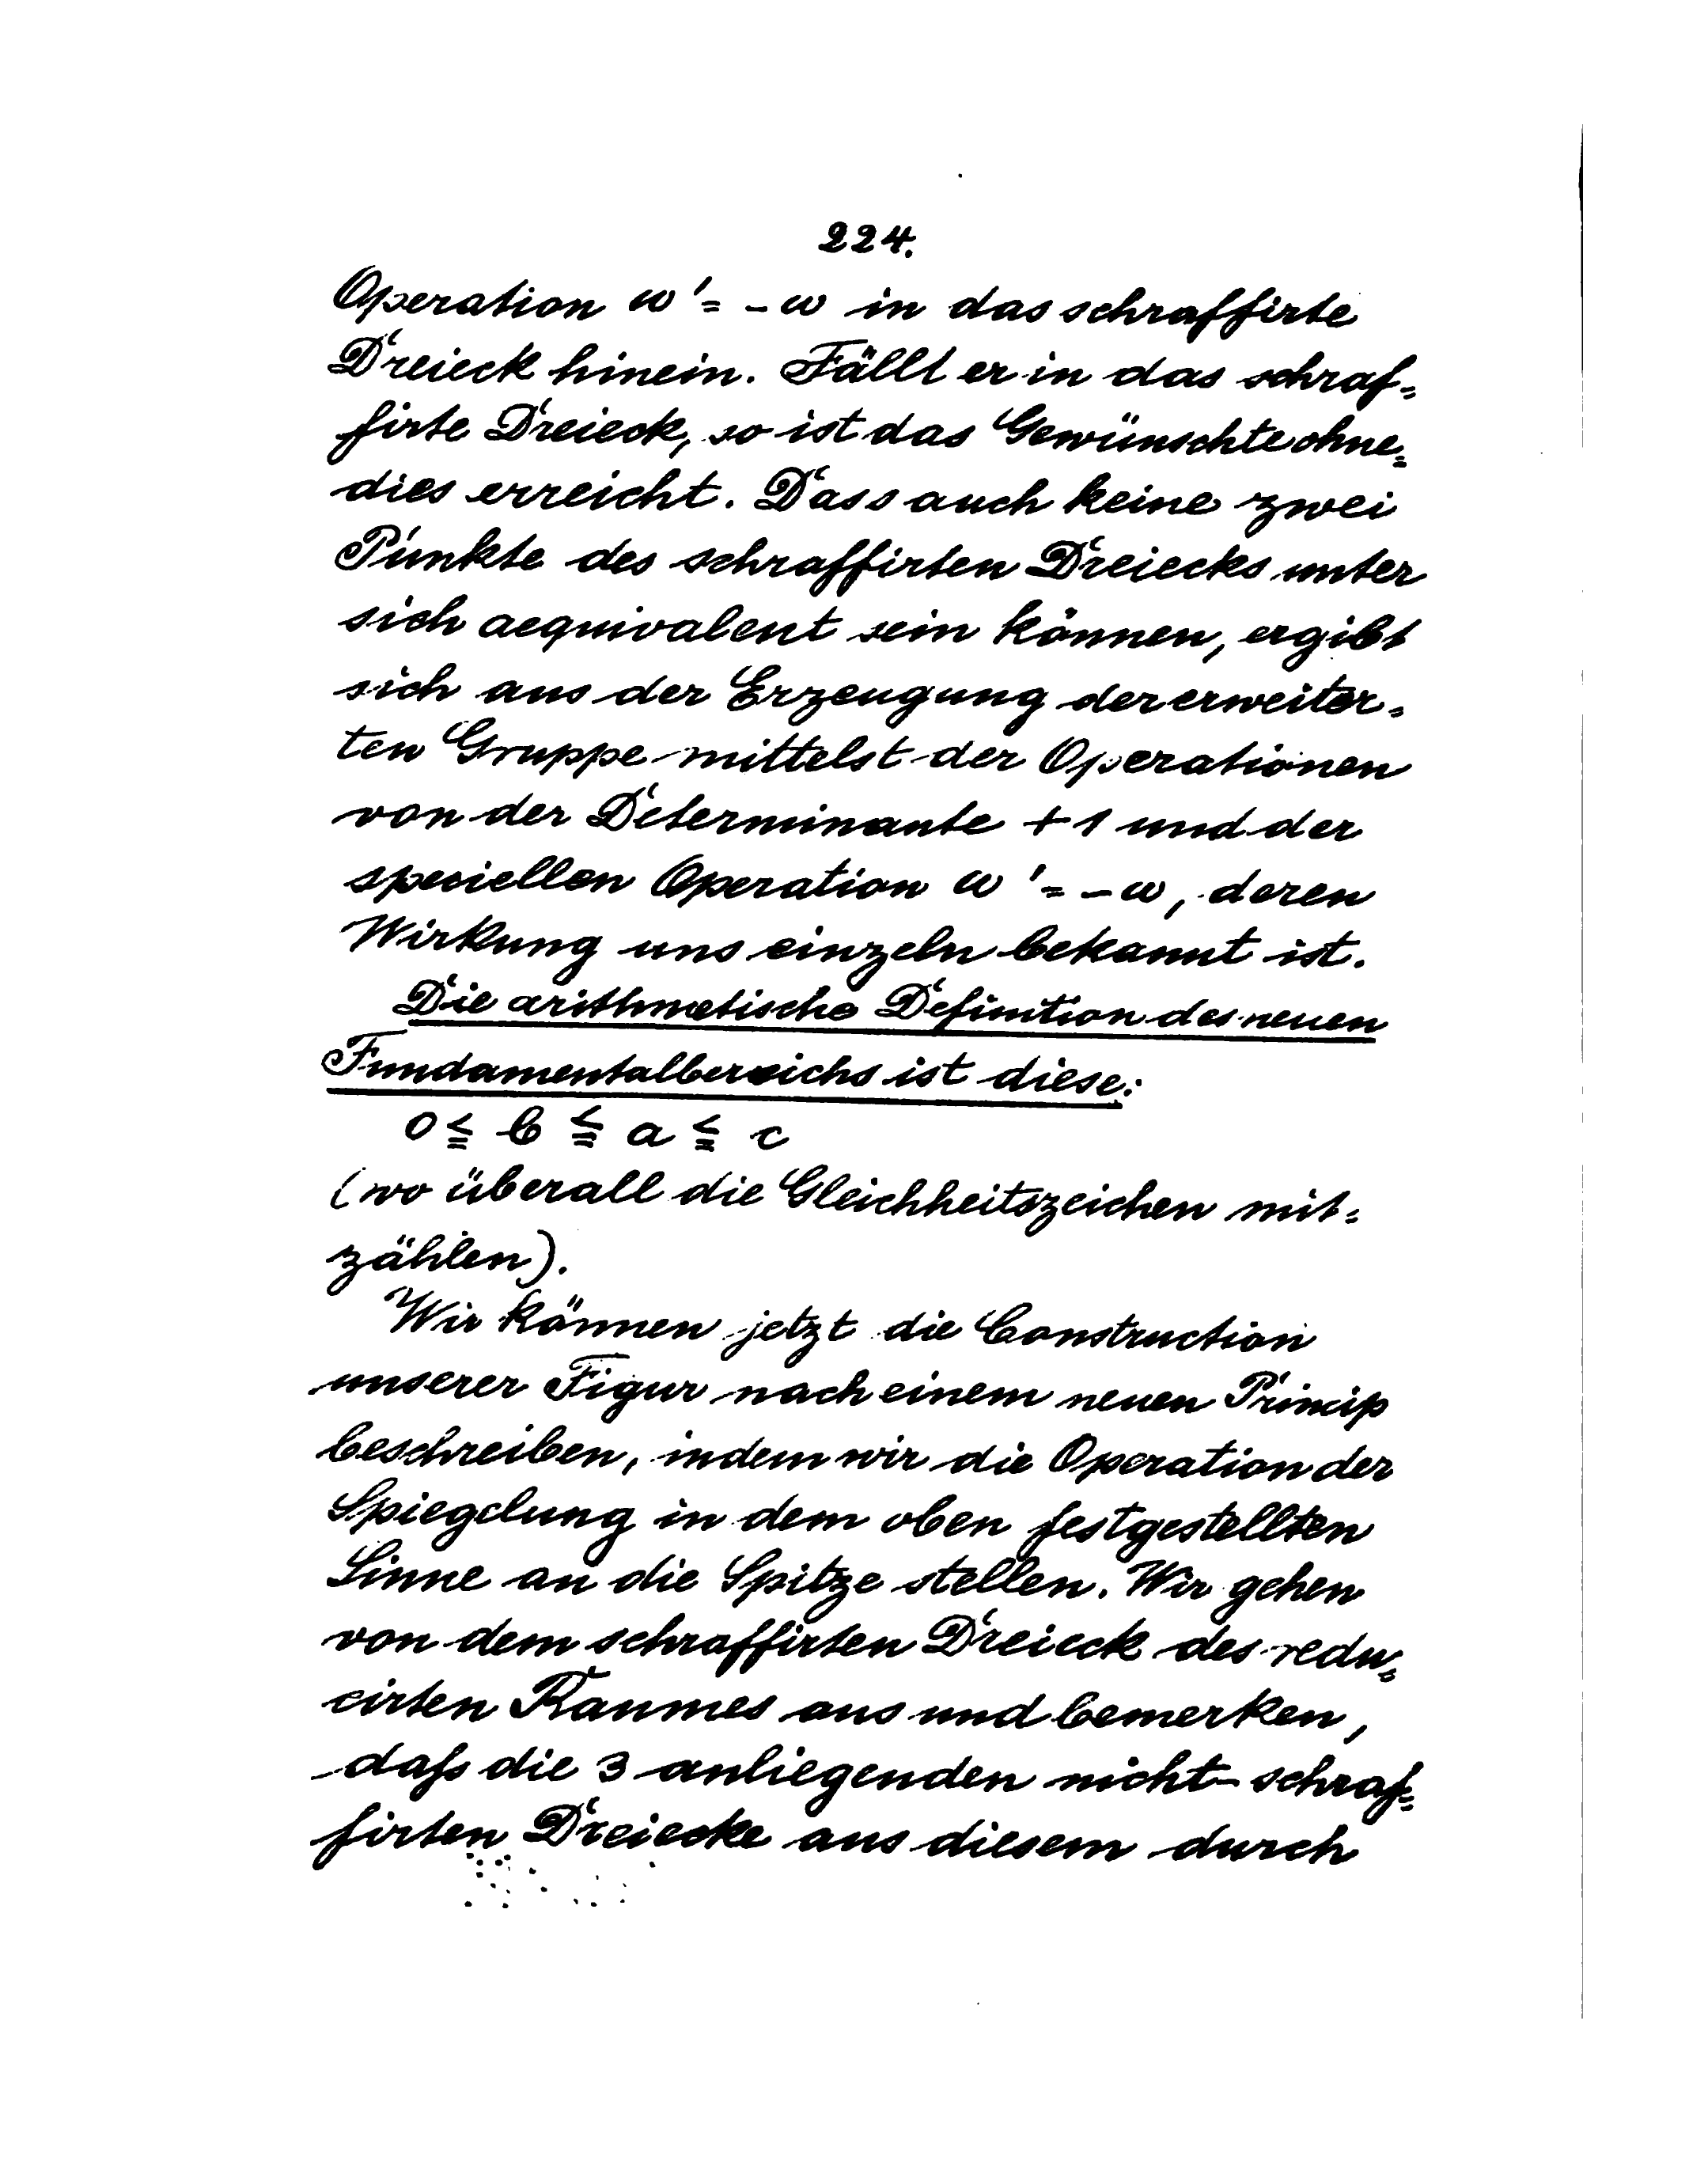 224.
Operation ω' = -ω in das schraffirte
Dreieck hinein. Fällt er in das schraf=
firte Dreieck, so ist das Gewünschte ohne=
dies erreicht. Dass auch keine zwei
Punkte des schraffirten Dreiecks unter
sich aequivalent sein können, ergibt
sich aus der Erzeugung der erweiter=
ten Gruppe mittelst der Operationen
von der Determinante +1 und der
speciellen Operation ω' = -ω, deren
Wirkung uns einzeln bekannt ist.
Die arithmetische Definition des neuen
Fundamentalbereichs ist diese:
0 ≦ b ≦ a ≦ c
(wo überall die Gleichheitszeichen mit=
zählen).
Wir können jetzt die Construction
unserer Figur nach einem neuen Princip
beschreiben, indem wir die Operation der
Spiegelung in dem oben festgestellten
Sinne an die Spitze stellen. Wir gehen
von dem schraffirten Dreieck des redu=
cirten Raumes aus und bemerken,
daß die 3 anliegenden nicht-schraf=
firten Dreiecke aus diesem durch